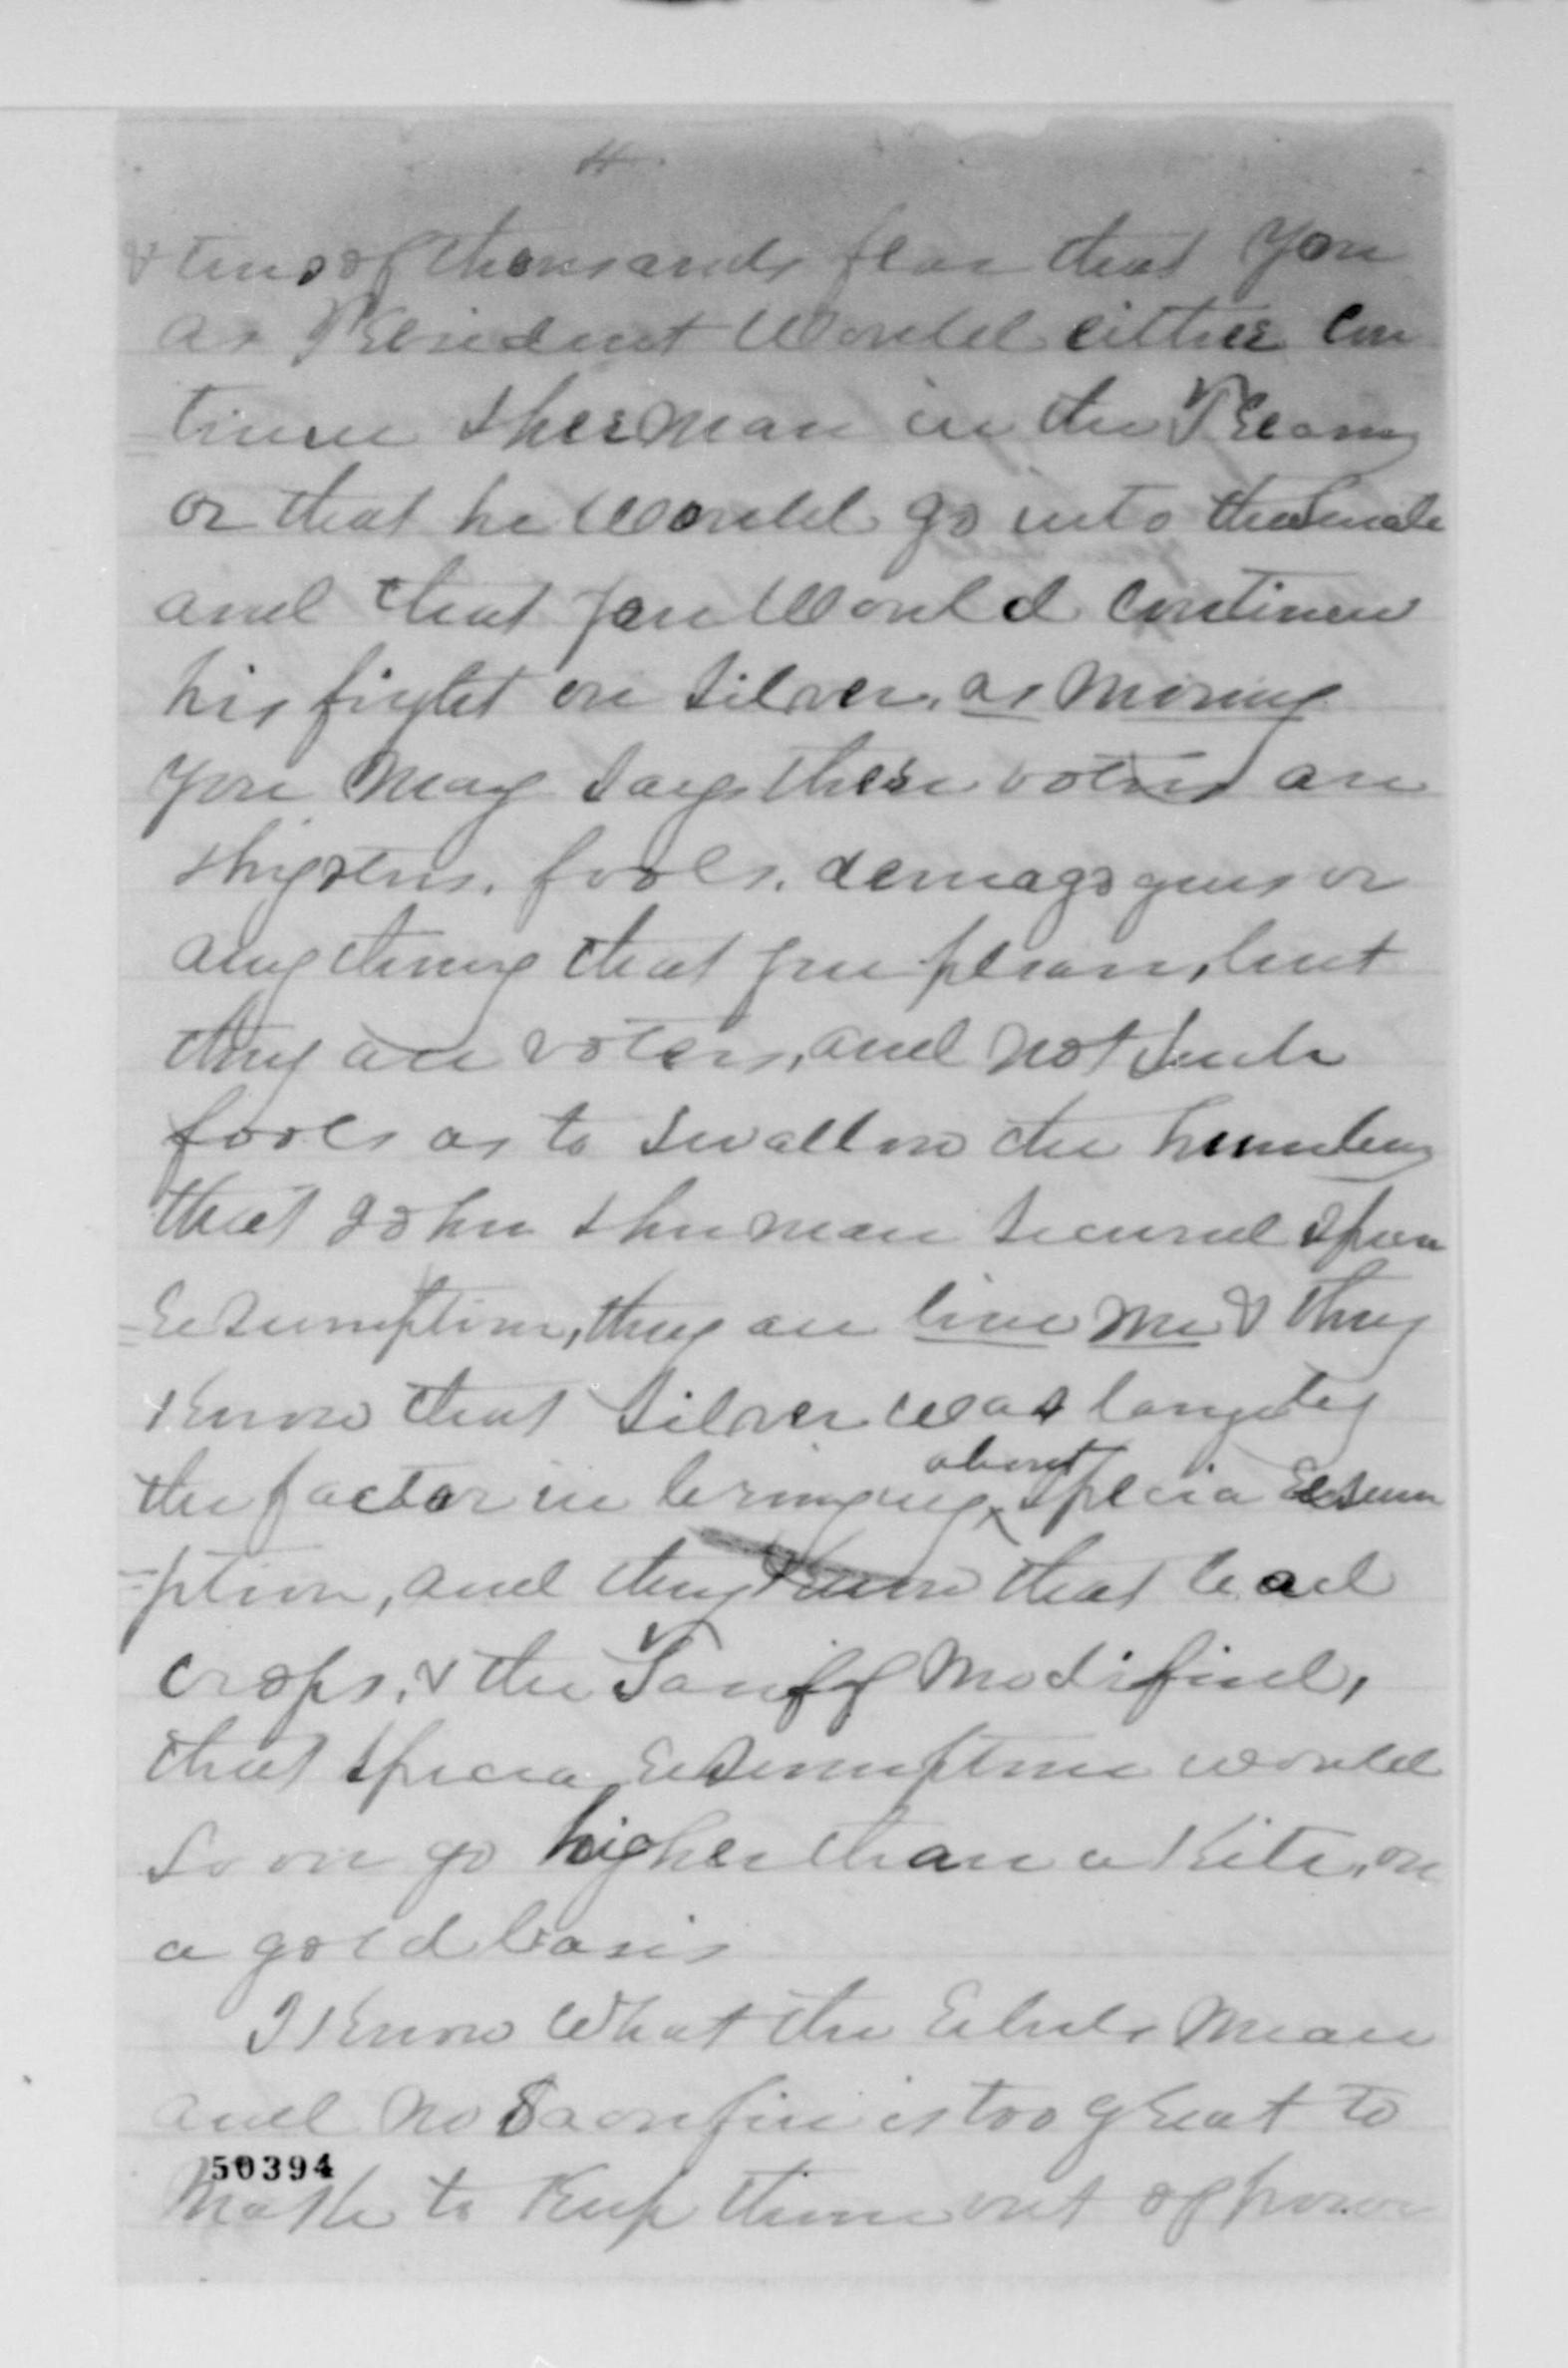 4.
& tens of thousands fear that you
as President would either con
tinue Sherman in the Treasury
or that he would go into the Senate
and that you would continue
his fight on Silver,
you may say these voters are
fools, demagogues or
anything that you please, but
they are voters, and not such
fools as to swallow the humbug
that John Sherman secured Specie
=resumption, they are live men & they
know that Silver was largely
the factor in bringing about Specia resum
=ption, and they know that bad
crops, & the Tariff modified,
that Specia resumption would
soon go higher than a Kite, on
a gold basis
I Know what the Rebels mean
and no Sacrifice is too great to
50394
make to Keep them out of power